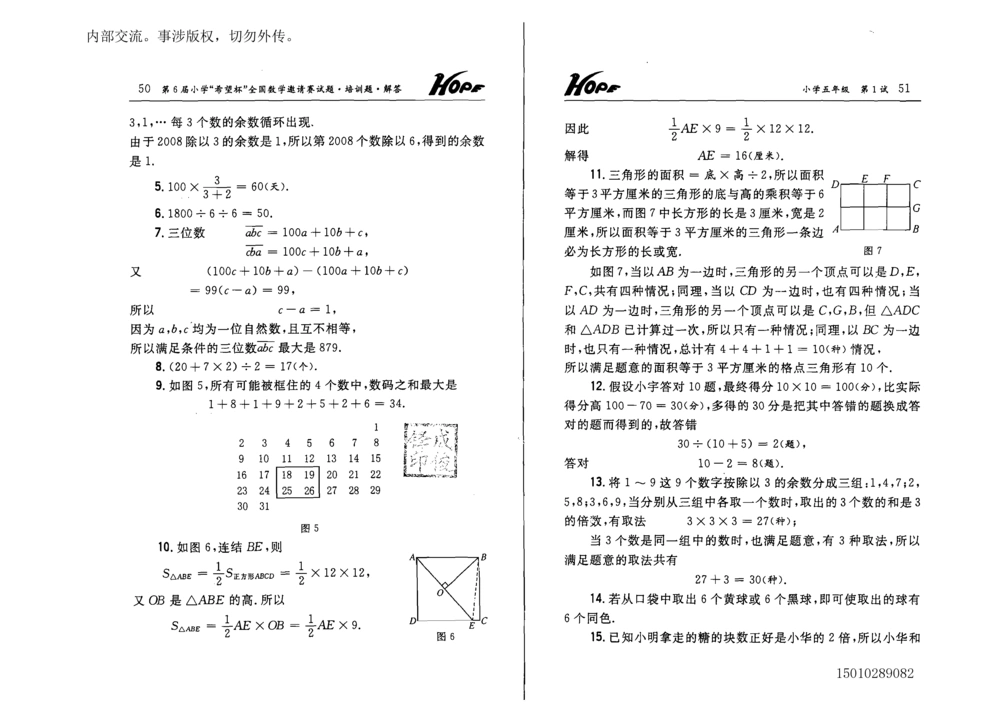 内部交流。事涉版权，切勿外传。
50 第6届小学“希望杯”全国数学邀请赛试题·培训题·解答 HOPE
3,1,… 每3个数的余数循环出现.
由于2008除以3的余数是1,所以第2008个数除以6,得到的余数
是1.
5. 100 × 3/(3+2) = 60(天).
6. 1800÷6÷6 = 50.
7. 三位数 abc = 100a+10b+c,
cba = 100c+10b+a,
又 (100c+10b+a)-(100a+10b+c)
= 99(c-a) = 99,
所以 c-a = 1,
因为a,b,c均为一位自然数,且互不相等,
所以满足条件的三位数abc最大是879.
8. (20+7×2)÷2 = 17(个).
9. 如图5,所有可能被框住的4个数中,数码之和最大是
1+8+1+9+2+5+2+6 = 34.
1
2 3 4 5 6 7 8
9 10 11 12 13 14 15
16 17 18 19 20 21 22
23 24 25 26 27 28 29
30 31
图5
10. 如图6,连结BE,则
S△ABE = 1/2 S正方形ABCD = 1/2 ×12×12,
又OB是△ABE的高.所以
S△ABE = 1/2 AE×OB = 1/2 AE×9.
A B
O
D E C
图6
HOPE 小学五年级 第1试 51
因此 1/2 AE×9 = 1/2 ×12×12.
解得 AE = 16(厘米).
11. 三角形的面积 = 底×高÷2,所以面积
等于3平方厘米的三角形的底与高的乘积等于6
平方厘米,而图7中长方形的长是3厘米,宽是2
厘米,所以面积等于3平方厘米的三角形一条边
必为长方形的长或宽.
D E F C
G
A B
图7
如图7,当以AB为一边时,三角形的另一个顶点可以是D,E,
F,C,共有四种情况;同理,当以CD为一边时,也有四种情况;当
以AD为一边时,三角形的另一个顶点可以是C,G,B,但△ADC
和△ADB已计算过一次,所以只有一种情况;同理,以BC为一边
时,也只有一种情况,总计有4+4+1+1 = 10(种)情况,
所以满足题意的面积等于3平方厘米的格点三角形有10个.
12. 假设小宇答对10题,最终得分10×10 = 100(分),比实际
得分高100-70 = 30(分),多得的30分是把其中答错的题换成答
对的题而得到的,故答错
30÷(10+5) = 2(题),
答对 10-2 = 8(题).
13. 将1～9这9个数字按除以3的余数分成三组:1,4,7;2,
5,8;3,6,9,当分别从三组中各取一个数时,取出的3个数的和是3
的倍数,有取法 3×3×3 = 27(种);
当3个数是同一组中的数时,也满足题意,有3种取法,所以
满足题意的取法共有
27+3 = 30(种).
14. 若从口袋中取出6个黄球或6个黑球,即可使取出的球有
6个同色.
15. 已知小明拿走的糖的块数正好是小华的2倍,所以小华和
15010289082